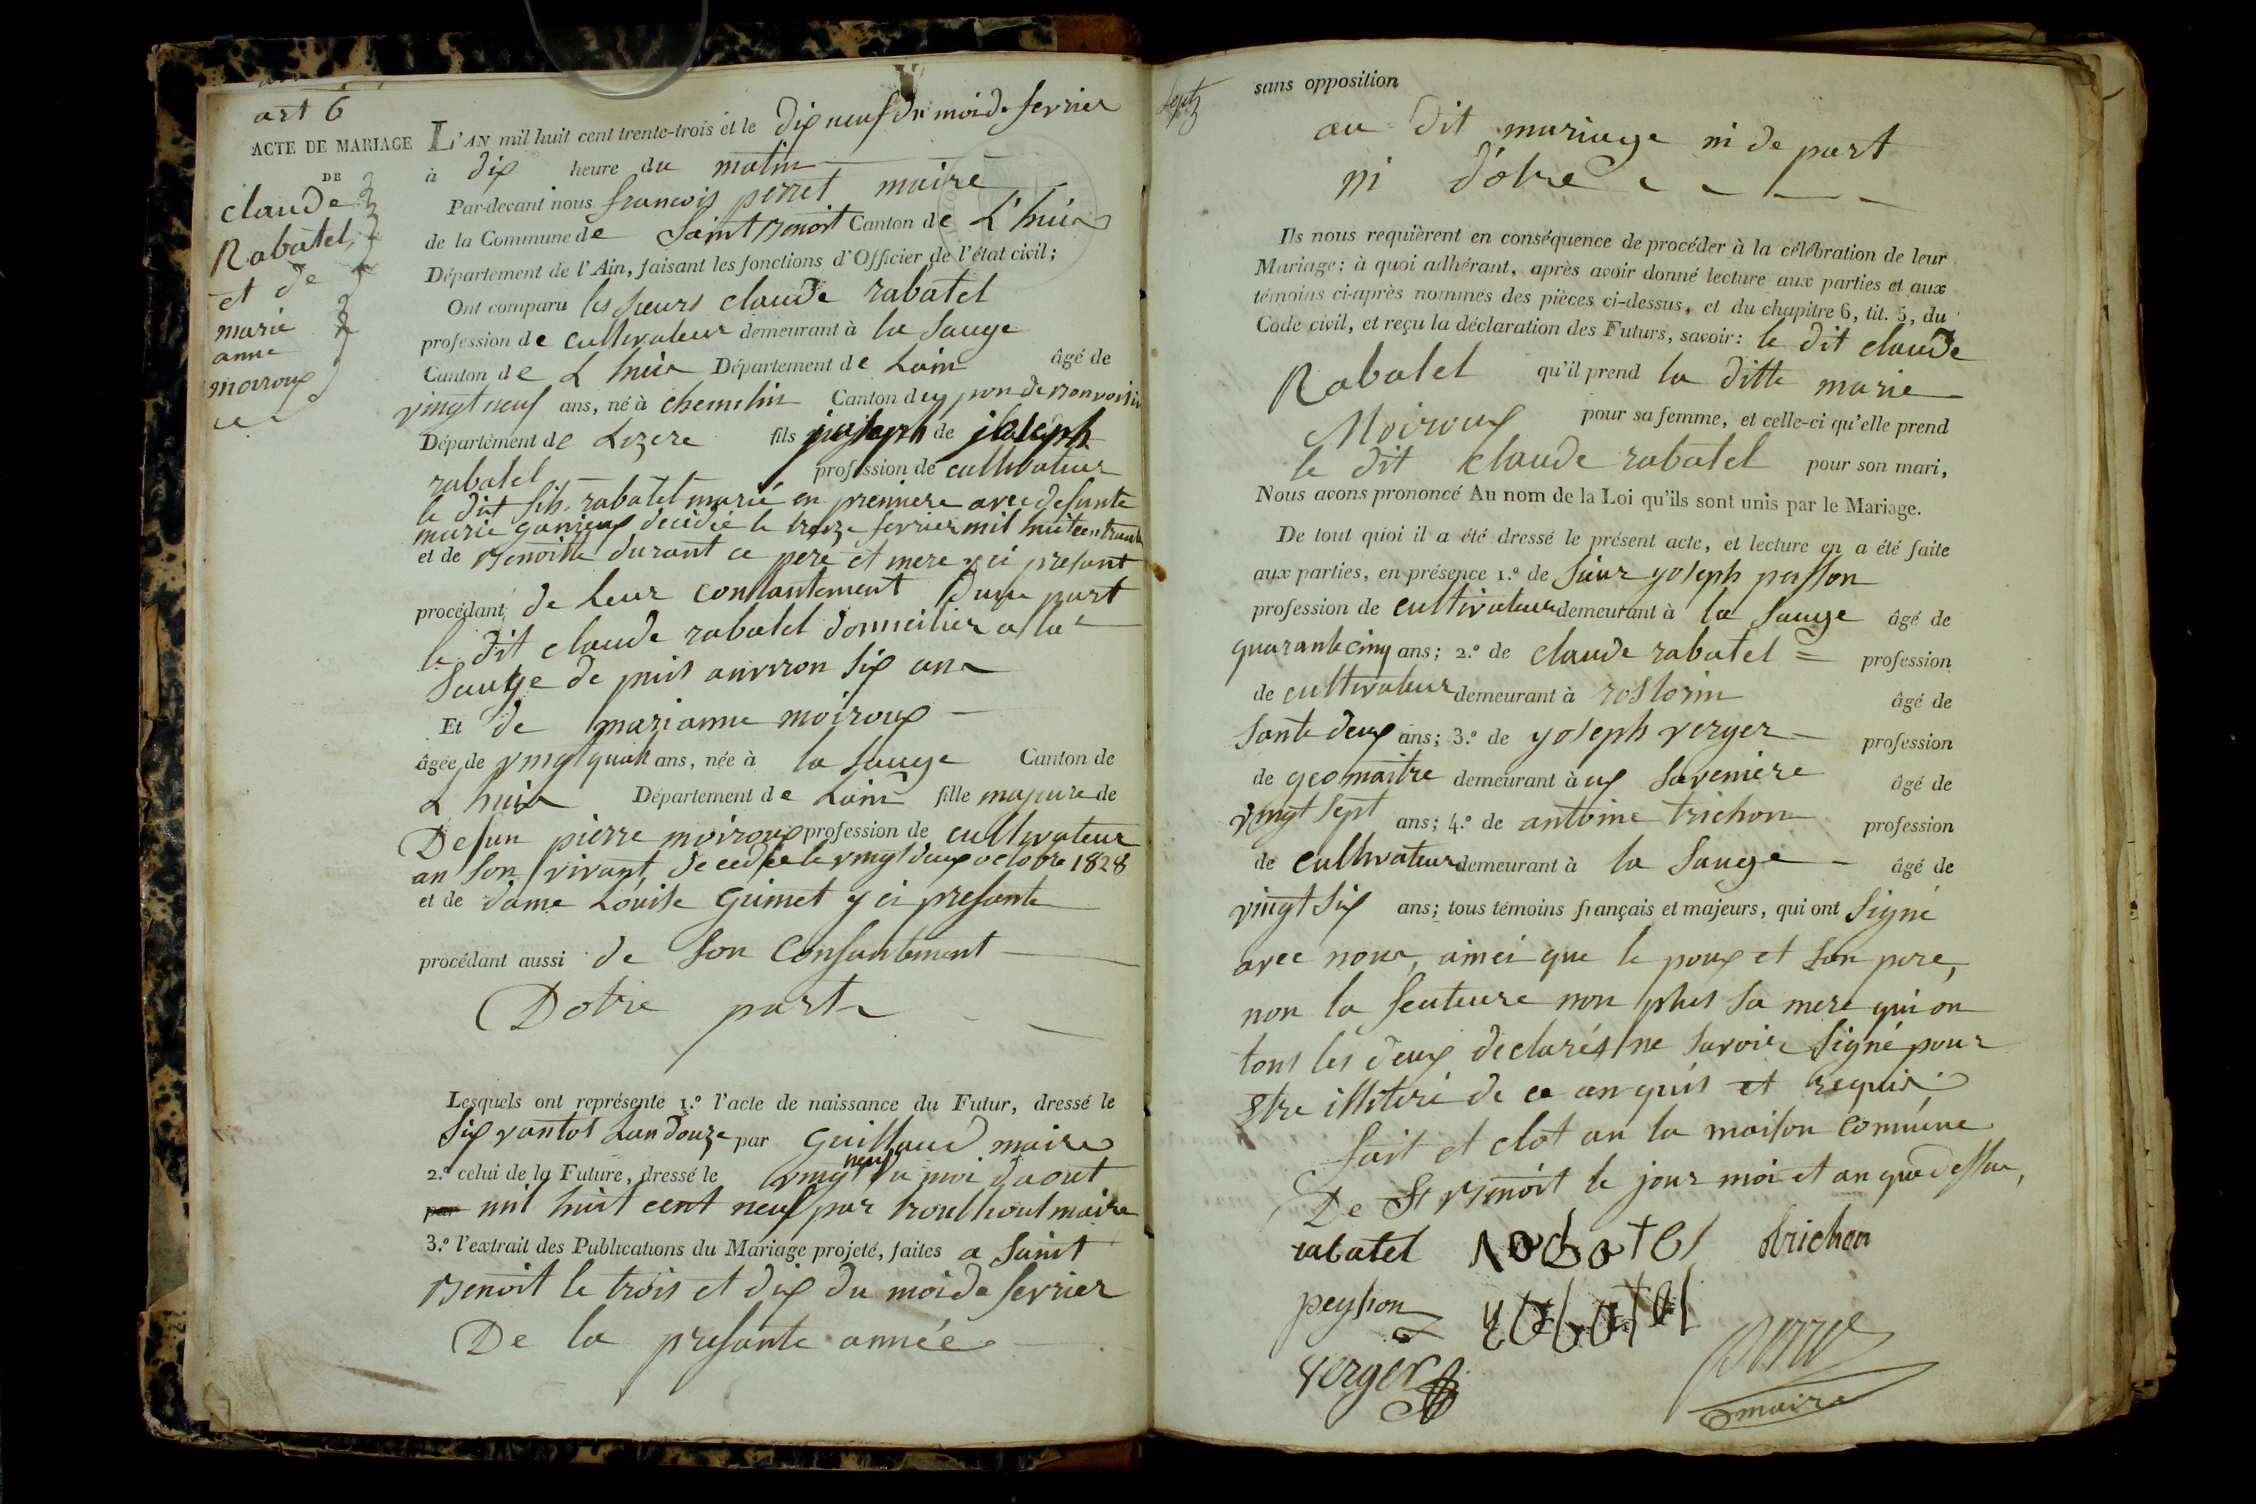 art 6
ACTE DE MARIAGE
DE
claude
Rabatel
et de
marie
anne
moiroux
L'AN mil huit cent trente-trois et le dix neuf du moi de fevrier
à dix heure du matin
Par-devant nous francois perret maire
de la Commune de Saint Benoit Canton de L'huis
Département de l'Ain, faisant les fonctions d'Officier de l'état civil;
Ont comparu les sieurs claude rabatel
profession de cultivateur demeurant à la Sauge
Canton de L huis Département de Lain âgé de
vingt neuf ans, né à chemelin Canton dey pon de Bonvoisin
Département de Lizere fils joseph de joseph
rabatel profession de cultivateur
le dit fils rabatel marié en premiere avec defunte
marie decidée le treze fevrier mil huit cent trante
et de Benoitte durant ce pere et mere y ci presant
procédant de Leur consantement Dune part
le dit claude rabatel domicilier a la
Sauge de puis anviron six ans
Et de marianne moiroux
âgée de vingt quatr ans, née à la Sauge Canton de
L huis Département de Lain fille majeure de
Defun pierre moiroux profession de cultivateur
an son vivant decedée le vingt deux octobre 1828
et de dame Louise Guimet y ci presante
procédant aussi de Son Consantement
Dotre part
Lesquels ont représenté 1.º l'acte de naissance du Futur, dressé le
Six vantos Lan douze par Guillaud maire
2.º celui de la Future, dressé le vingt neuf du moi daout
par mil huit cent neuf par trouilloud maire
3.º l'extrait des Publications du Mariage projeté, faites a Saint
Benoit le trois et dix du moi de fevrier
De la presante année
sans opposition
au dit mariage ni de part
ni d'otre
Ils nous requièrent en conséquence de procéder à la célébration de leur
Mariage; à quoi adhérant, après avoir donné lecture aux parties et aux
témoins ci-après nommés des pièces ci-dessus, et du chapitre 6, tit. 5, du
Code civil, et reçu la déclaration des Futurs, savoir: le dit claude
Rabatel qu'il prend la ditte marie
Moiroux pour sa femme, et celle-ci qu'elle prend
le dit Claude rabatel pour son mari,
Nous avons prononcé Au nom de la Loi qu'ils sont unis par le Mariage.
De tout quoi il a été dressé le présent acte, et lecture en a été faite
aux parties, en présence 1.º de Sieur yoseph peysson
profession de cultivateur demeurant à la Sauge âgé de
quarante cinq ans; 2.º de claude rabatel profession
de cultivateur demeurant à rostorin âgé de
Sante deux ans; 3.º de yoseph verger profession
de geomaitre demeurant à ux Saveniere âgé de
vingt Sept ans; 4.º de antoine trichon profession
de cultivateur demeurant à la Sauge âgé de
vingt Six ans; tous témoins français et majeurs, qui ont Signé
avec nous, ainci que le poux et Son pere,
non la feuteure non plus Sa mere qui on
tous les deux declarés ne Savoir Signé pour
Etre illiteré de ce anquis et requis
fait et clot an la maison commune
De St Benoit le jour moi et an que dessus,
rabatel rabatel trichon
peysson rabatel
verger perret
maire